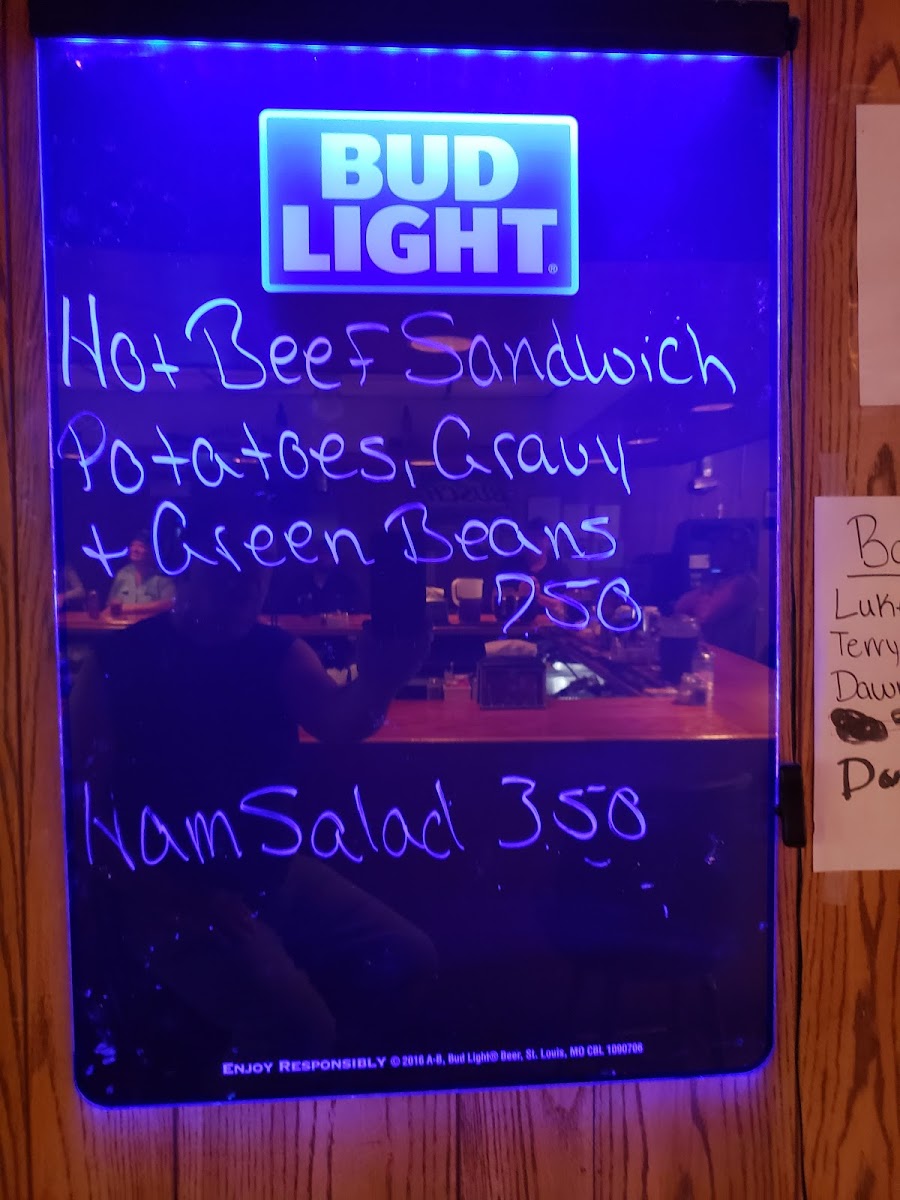 BUD
LIGHT®
Hot Beef Sandwich
Potatoes, Gravy
+ Green Beans
750
Ham Salad 350
ENJOY RESPONSIBLY © 2016 A-B, Bud Light® Beer, St. Louis, MO CBL 1090706
Terry